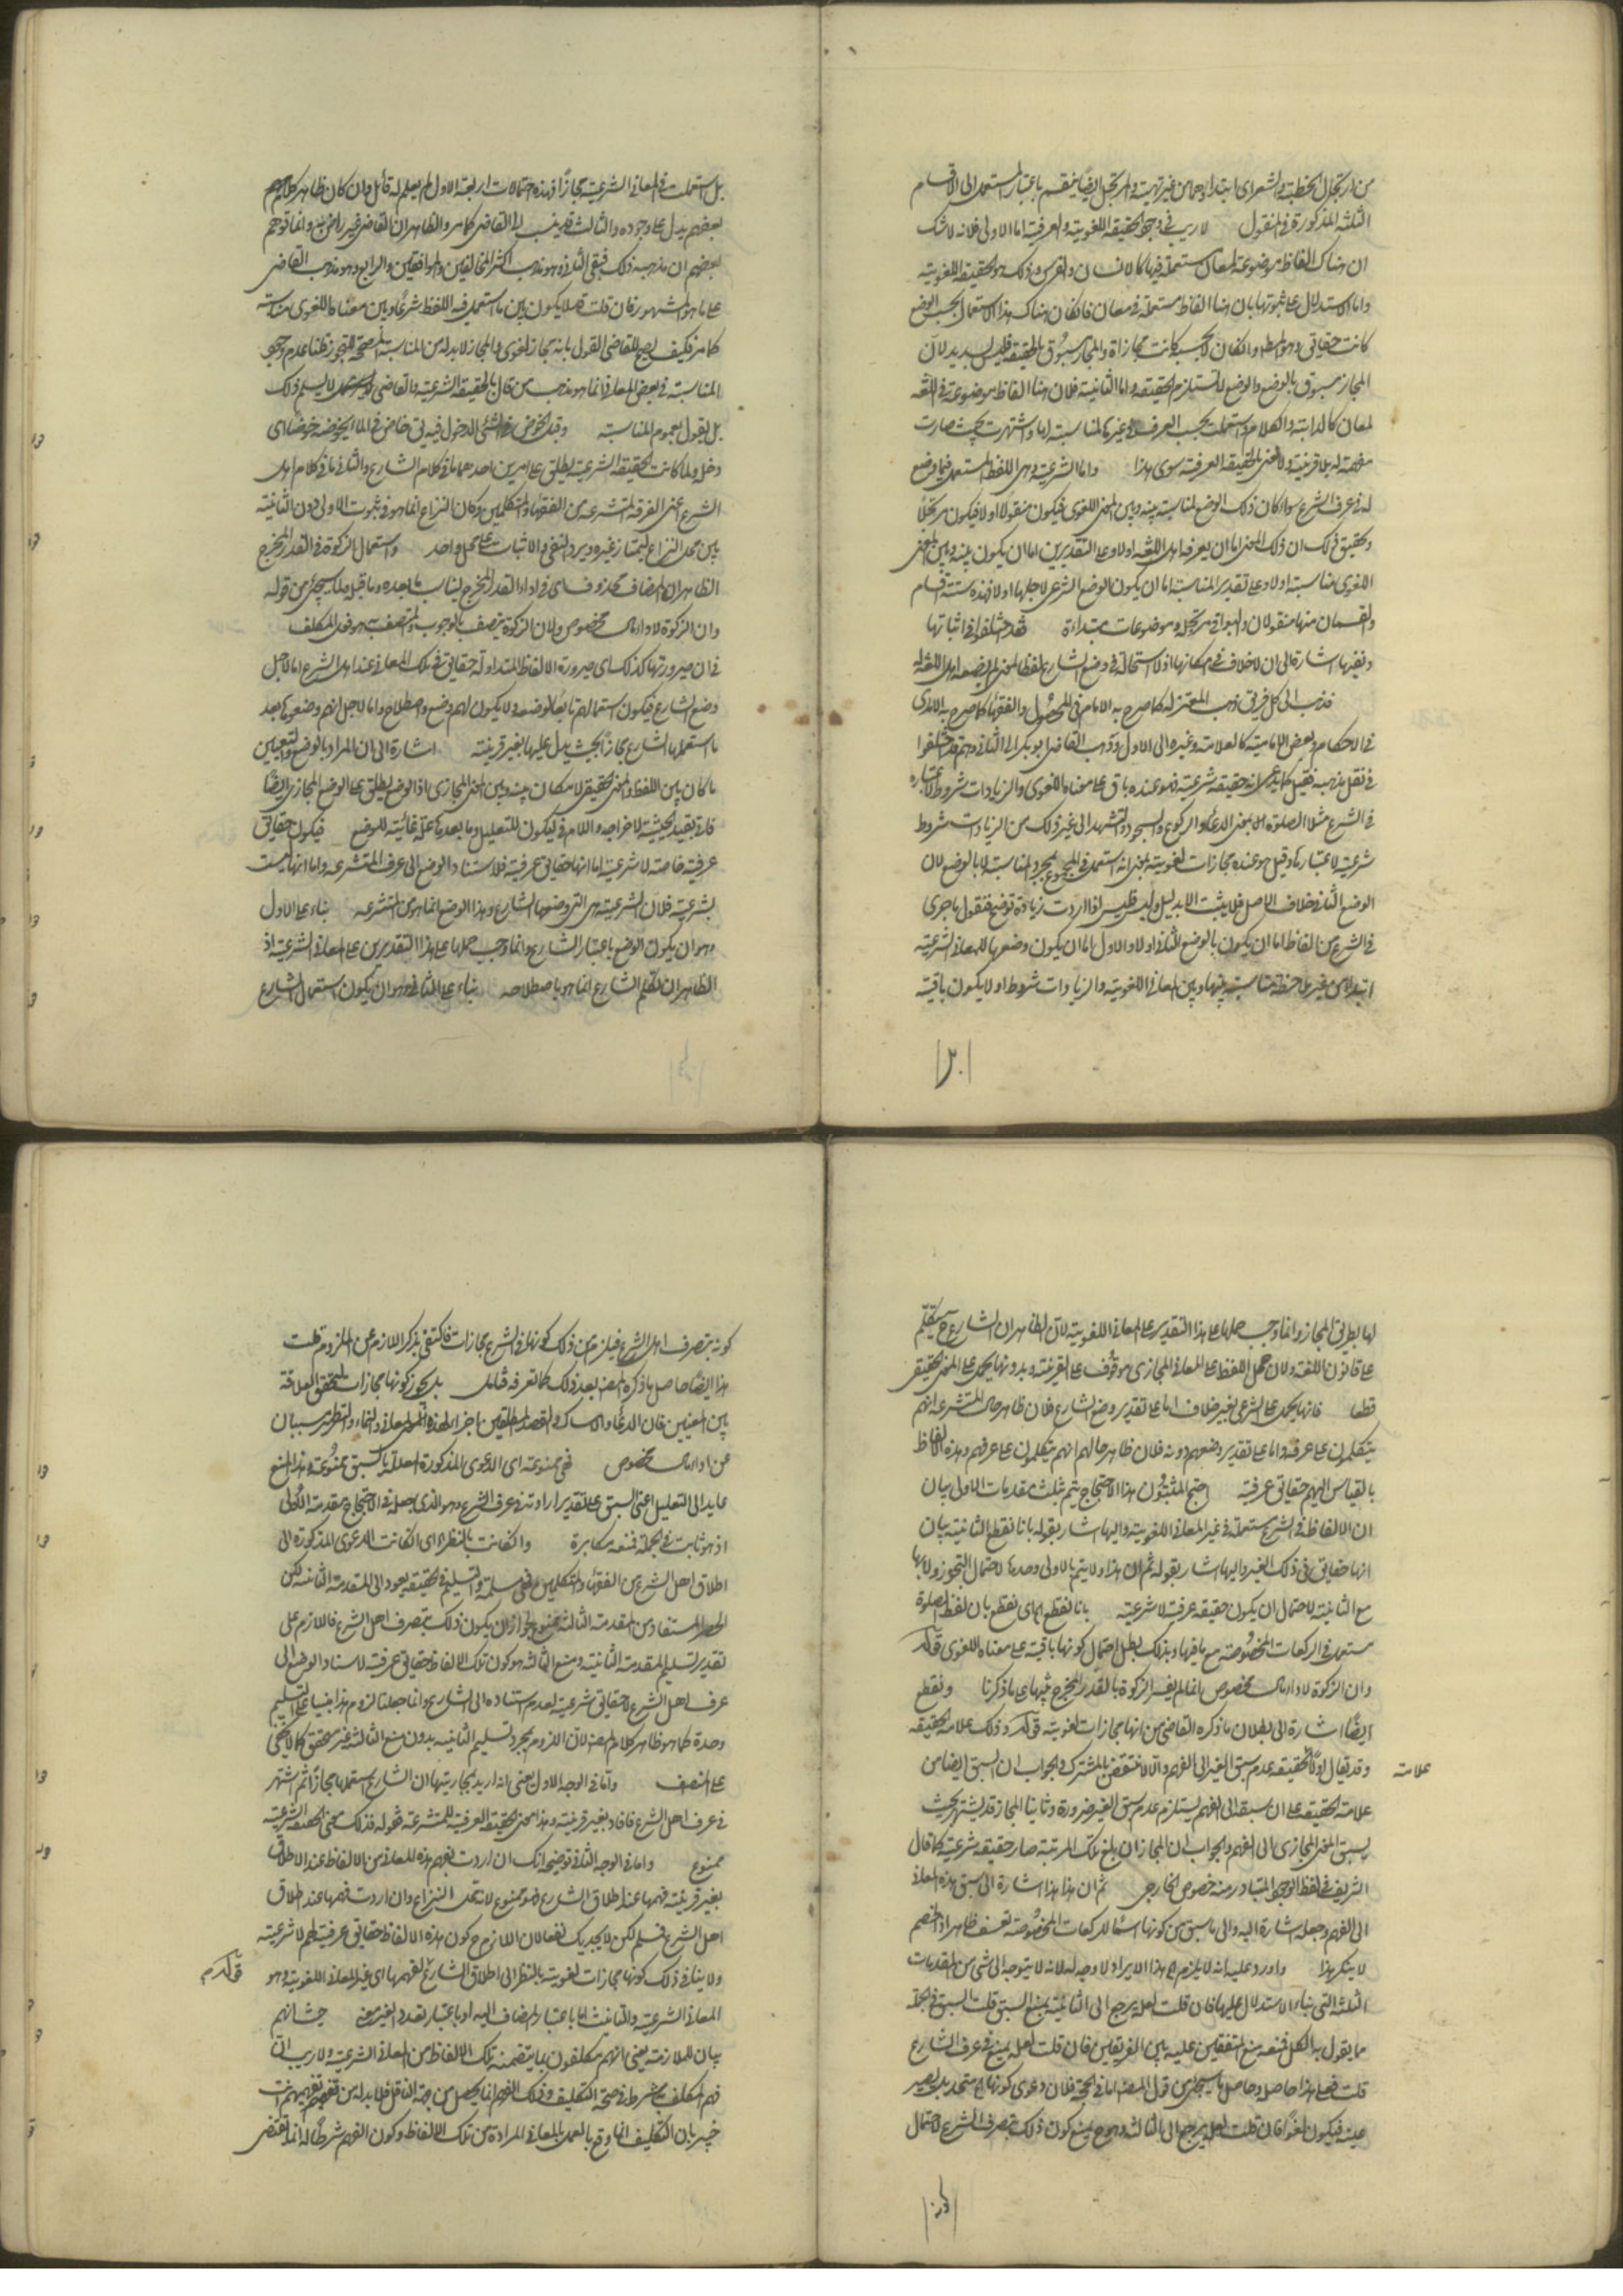 من ارتجل الخطبة والشعر اى ابتدأ بهما من غير تهيئة والمرتجل ايضا ينقسم باعتبار المستعمل الى الاقسام
الثلثة المذكورة فى المنقول لا ريب فى وجود الحقيقة اللغوية والعرفية اما الاولى فلانه لا شك
ان هناك الفاظا موضوعة لمعان مستعملة فيها كالانسان والفرس وذلك هو الحقيقة اللغوية
واما الاستدلال على ثبوتها بان هنا الفاظ مستعملة فى معان فان كان هناك هذا الاستعمال بحسب الوضع
كانت حقايق وهو المط وان كان لا بحسبه كانت مجازاة والمجاز مسبوق بالحقيقة فليس بسديد لان
المجاز مسبوق بالوضع والوضع لا يستلزم الحقيقة واما الثانية فلان هنا الفاظ موضوعة فى اللغة
لمعان كالدابة والكلام واستعملت بحسب العرف فى غيرها لمناسبة لها واشتهرت بحيث صارت
مفهمة له بلا قرينة ولا نعنى بالحقيقة العرفية سوى هذا واما الشرعية وهى اللفظ المستعمل فيما وضع
له فى عرف الشرع سواء كان ذلك الوضع لمناسبة بينه وبين المعنى اللغوى فيكون منقولا اولا فيكون مرتجلا
وتحقيق ذلك ان ذلك المعنى اما ان يعرفه اهل اللغة اولا وعلى التقديرين اما ان يكون بينه وبين المعنى
اللغوى مناسبة اولا وعلى تقدير المناسبة اما ان يكون الوضع الشرعى لاجلها اولا فهذه ستة اقسام
والقسمان منها منقولان والبواقى مرتجلة وموضوعات مبتداءة فقد اختلفوا فى اثباتها
ونفيها اشارة الى ان لا خلاف فى امكانها اذ لا استحالة فى وضع الشارع لفظا لمعنى لم يضعه اهل اللغة له
فذهب الى كل فريق ذهب المعتزلة كما صرح به الامام فى المحصول والفقهاء كما صرح به الامدى
فى الاحكام وبعض الامامية كالعلامة وغيره الى الاول وذهب القاضى ابو بكر الى الثانى وهم قد اختلفوا
فى نقل مذهبه فقيل كلما يدعى انه حقيقة شرعية فهو عنده باق على معناه اللغوى والزيادات شروط لاعتباره
فى الشرع مثلا الصلوة الان بمعنى الدعاء والركوع والسجود والتشهد الى غير ذلك من الزيادات مشروط
شرعية لاعتبارها وقيل هو عنده مجازات لغوية بمعنى انه استعمل فى المجموع بمجرد المناسبة لا بالوضع لان
الوضع الثانى خلاف الاصل فلا يثبت الا بدليل وليس فليس اذا اردت زيادة توضيح فنقول ما جرى
فى الشرع من الفاظ اما ان يكون بالوضع الثانى اولا والاول اما ان يكون وضعها للمعانى الشرعية
ابتداء من غير ملاحظة مناسبة بينها وبين المعانى اللغوية والزيادات شروط اولا يكون باقية
بل استعملت فى المعانى الشرعية مجازا فهذه احتمالات اربعة الاول لم يعلم له قائل وان كان ظاهر كلامهم
بعضهم يدل على وجوده والثالث قد ينسب الى القاضى كما مر والظاهر ان القاضى غير راض به وانما توهم
بعضهم ان مذهبه ذلك فبقى الثانى وهو مذهب اكثر المخالفين والموافقين والرابع وهو مذهب القاضى
على ما هو المشهور فان قلت قد لا يكون بين ما استعمل فيه اللفظ شرعا وبين معناه اللغوى مناسبة
كما مر فكيف يصح للقاضى القول بانه مجاز لغوى والمجاز لا بد له من المناسبة المصححة للتجوز قلنا عدم وجود
المناسبة فى بعض المعانى انما هو مذهب من قال بالحقيقة الشرعية والقاضى لا يسلم ذلك
بل يقول بعموم المناسبة وقبل الخوض فى الشئ الدخول فيه يق خاض فى الماء يخوضه خوضا اى
دخل ولما كانت الحقيقة الشرعية يطلق على امرين احدهما ما فى كلام الشارع والثانى ما فى كلام اهل
الشرع اعنى الفرقة المتشرعة من الفقهاء والمتكلمين وكان النزاع انما هو فى ثبوت الاولى دون الثانية
بين محل النزاع ليمتاز غيره ويرد النفى والاثبات على محل واحد واستعمال الزكوة فى القدر المخرج
الظاهر ان المضاف محذوف اى فى اداء القدر المخرج ليناسب ما بعده وما قبله ولما سيجئ من قوله
وان الزكوة لاداء مال مخصوص ولان الزكوة يتصف بالوجوب والمتصف به هو فعل المكلف
فى ان صيرورتها كذلك اى صيرورة الالفاظ المتداولة حقايق فى تلك المعانى عند اهل الشرع اما لاجل
وضع الشارع فيكون استعمالهم تابعا لوضعه ولا يكون لهم وضع واصطلاح واما لاجل انهم وضعوها بعد
ما استعملها الشارع مجازا بحيث يدل عليها بغير قرينة اشارة الى ان المراد بالوضع التعيين
ما كان بين اللفظ والمعنى الحقيقى لا ما كان بينه وبين المعنى المجازى اذ الوضع يطلق على الوضع المجازى ايضا
فاتى بقيد الحيثية لاخراجه واللام فى ليكون للتعليل وما بعدها علة غائية للوضع فيكون حقايق
عرفية خاصة لا شرعية اما انها حقايق عرفية فلاستناد الوضع الى عرف المتشرعة واما انها ليست
بشرعية فلان الشرعية هى التى وضعها الشارع وهذا الوضع انما هو من المتشرعة بناء على الاول
وهو ان يكون الوضع باعتبار الشارع وانما وجب حملها على هذا التقديرين على المعانى الشرعية اذ
الظاهر ان تكلم الشارع انما هو باصطلاحه بناء على الثانى وهو ان يكون استعمال الشارع
لها بطريق المجاز وانما وجب حملها على هذا التقدير على المعانى اللغوية لان الظاهر ان الشارع ح يتكلم
على قانون اللغة ولان حمل اللفظ على المعانى المجازى موقوف على القرينة وبدونها يحمل على المعنى الحقيقى
قطعا فانها يحمل على الشرعى بغير خلاف اما على تقدير وضع الشارع فلان ظاهر حال المتشرعة انهم
يتكلمون على عرفه واما على تقدير وضعهم دونه فلان ظاهر حالهم انهم يتكلمون على عرفهم وهذه الالفاظ
بالقياس اليهم حقايق عرفية احتج المثبتون هذا الاحتجاج يتم بثلث مقدمات الاولى بيان
ان الالفاظ فى الشرع مستعملة فى غير المعانى اللغوية واليها اشار بقوله بانا نقطع الثانية بيان
انها حقايق فى ذلك الغير واليها اشار بقوله ثم ان هذا ولا يتم بالاولى وحدها لاحتمال التجوز ولا بها
مع الثانية لاحتمال ان يكون حقيقة عرفية لا شرعية بانا نقطع اى نقطع بان لفظ الصلوة
مستعمل فى الركعات المخصوصة مع ما فيها وبذلك بطل احتمال كونها باقية على معناه اللغوى قوله
وان الزكوة لاداء مال مخصوص انما لم يفسر الزكوة بالقدر المخرج تنبيها على ما ذكرنا ونقطع
ايضا اشارة الى بطلان ما ذكره القاضى من انها مجازات لغوية قوله وذلك علامة الحقيقة
وقد يقال اولا الحقيقة عدم سبق الغير الى الفهم والا لانتقض بالمشترك والجواب ان السبق ايضا من
علامة
علامة الحقيقة على ان سبقه الى الفهم يستلزم عدم سبق الغير ضرورة وثانيا المجاز قد يشتهر بحيث
يسبق المعنى المجازى الى الفهم والجواب ان المجاز ان بلغ تلك المرتبة صار حقيقة شرعية كما قال
الشريف فى لفظ الوجود المتبادر منه خصوص الخارجى ثم ان هذا هذا اشارة الى سبق هذه المعانى
الى الفهم وجعله اشارة اليه والى ما سبق من كونها اسما للركعات المخصوصة تعسف ظاهر اذ الخصم
لا ينكر هذا واورد عليه انه لا يلزم اه هذا الايراد لا وجه له لانه لا يتوجه الى شئ من المقدمات
الثلثة التى بناء الاستدلال عليها فان قلت لعله يرجع الى الثانية بمنع السبق قلت السبق فى الجملة
مما يقول به الكل فمنعه منع المتفقين عليه بين الفريقين فان قلت لعله يمنع فى عرف الشارع
قلت فعلى هذا حاصله وحاصل ما سيجئ من قول المص اما فى الحجة فلان دعوى كونها اه متحد بل يصير
عينه فيكون لغوا فان قلت لعله يرجع الى الثالثة وهو ح يمنع كون ذلك بتصرف الشرع لاحتمال
كونه بتصرف اهل الشرع فيلزم من ذلك كونها فى الشرع مجازات فاكتفى بذكر اللازم عن الملزوم قلت
هذا ايضا حاصل ما ذكره المص بعد ذلك كما تعرفه فتامل بل يجوز كونها مجازات لتحقق العلاقة
بين المعنيين فان الدعاء والامساك والقصد المطلقين اجزاء لهذه المعانى والنماء والتطهر مسببان
عن اداء مال مخصوص فهى ممنوعة اى الدعوى المذكورة المعللة بالسبق ممنوعة وهذا المنع
عايد الى التعليل اعنى السبق على تقدير ارادته فى عرف الشرع وهو الذى جعله فى الاحتجاج مقدمة الاولى
اذ هو ثابت فى الجملة فمنعه مكابرة وان كانت بالنظر اى ان كانت الدعوى المذكورة الى
اطلاق اهل الشرع من الفقهاء والمتكلمين فهى مسلمة والتسليم فى الحقيقة يعود الى المقدمة الثانية لكن
الحصر المستفاد من المقدمة الثالثة ممنوع لجواز ان يكون ذلك بتصرف اهل الشرع فاللازم على
تقدير تسليم المقدمة الثانية ومنع الثالثة هو كون تلك الالفاظ حقايق عرفية لاسناد الوضع الى
عرف اهل الشرع لا حقايق شرعية لعدم استناده الى الشارع وانما جعلنا لزوم هذا مبنيا على التسليم
وحده كما هو ظاهر كلام المص لان اللزوم بمجرد تسليم الثانية بدون منع الثالثة غير متحقق كما لا يخفى
على المنصف واما فى الوجه الاول يعنى انه اريد بمجازيتها ان الشارع استعملها مجازا ثم اشتهر
فى عرف اهل الشرع فافاد بغير قرينة وهذا معنى الحقيقة العرفية للمتشرعة فقوله فذلك معنى الحقيقة الشرعية
ممنوع واما فى الوجه الثانى توضيحه انك ان اردت بفهم هذه المعانى من الالفاظ عند الاطلاق
بغير قرينة فهمها عند اطلاق الشارع فهو ممنوع لانه محل النزاع وان اردت فهمها عند اطلاق
اهل الشرع فمسلم لكن لا يجديك نفعا لان اللازم ح كون هذه الالفاظ حقايق عرفية لهم لا شرعية
ولا ينافى ذلك كونها مجازات لغوية بالنظر الى اطلاق الشارع لفهمها اى غير المعانى اللغوية وهو
قوله م
المعانى الشرعية والتانيث اما باعتبار المضاف اليه او باعتبار تعدد الغير معنى حيث انهم
بيان للملازمة يعنى انهم مكلفون بما يتضمنه تلك الالفاظ من المعانى الشرعية ولا ريب ان
فهم المكلف به شرط فى صحة التكليف وذلك الفهم انما يحصل من جهة الناقل فلا بد له من تفهيمهم انت
خبير بان التكليف انما وقع بالعمل بالمعانى المرادة من تلك الالفاظ وكون الفهم شرطا له انما يقتضى